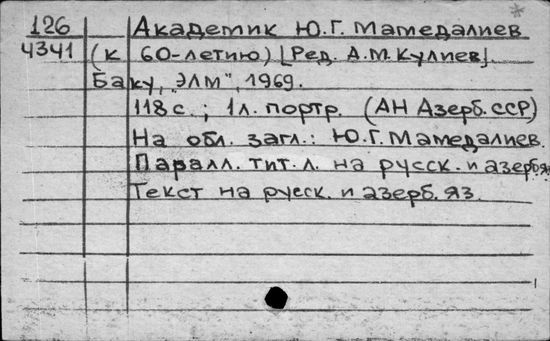 126 Академик Ю.Г. Мамедалиев
4341 (к 60-летию) [Ред. А.М. Кулиев].
Баку, "ЭЛМ", 1969.
118 с.; 1 л. портр. (АН Азерб. ССР)
На обл. загл.: Ю.Г. Мамедалиев.
Паралл. тит. л. на русск. и азерб. яз
Текст на русск. и азерб. яз.